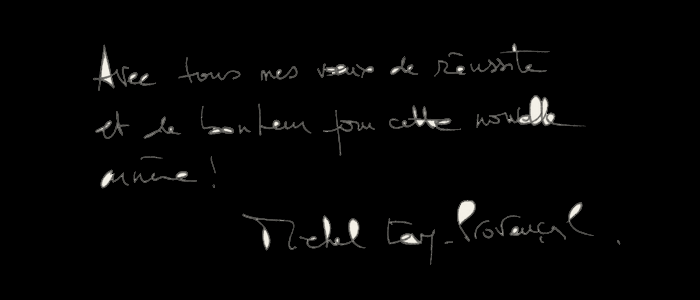 Avec tous mes voeux de réussite
et de bonheur pour cette nouvelle
année !
Michel Levy-Provençal.